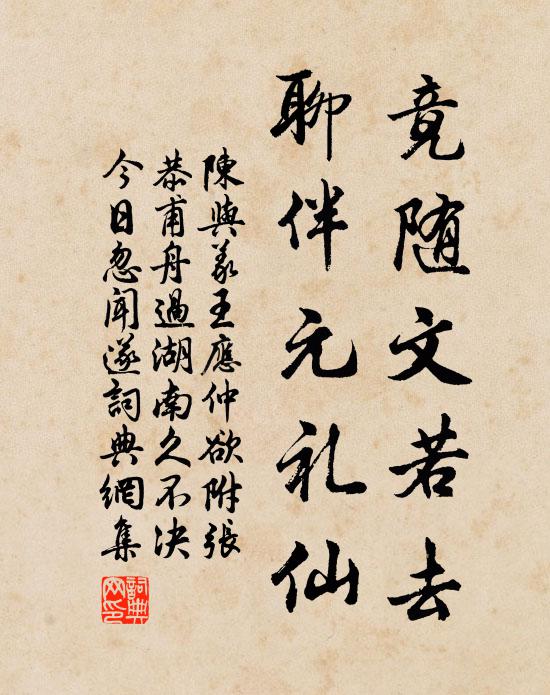 竟随文若去
聊伴元礼仙
陳與义王應仲欲附張
恭甫舟過湖南久不决
今日忽闻遂詞典網集
詞典网印